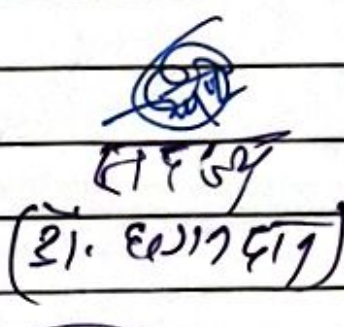 सदस्य
(डॉ. छगन दान)